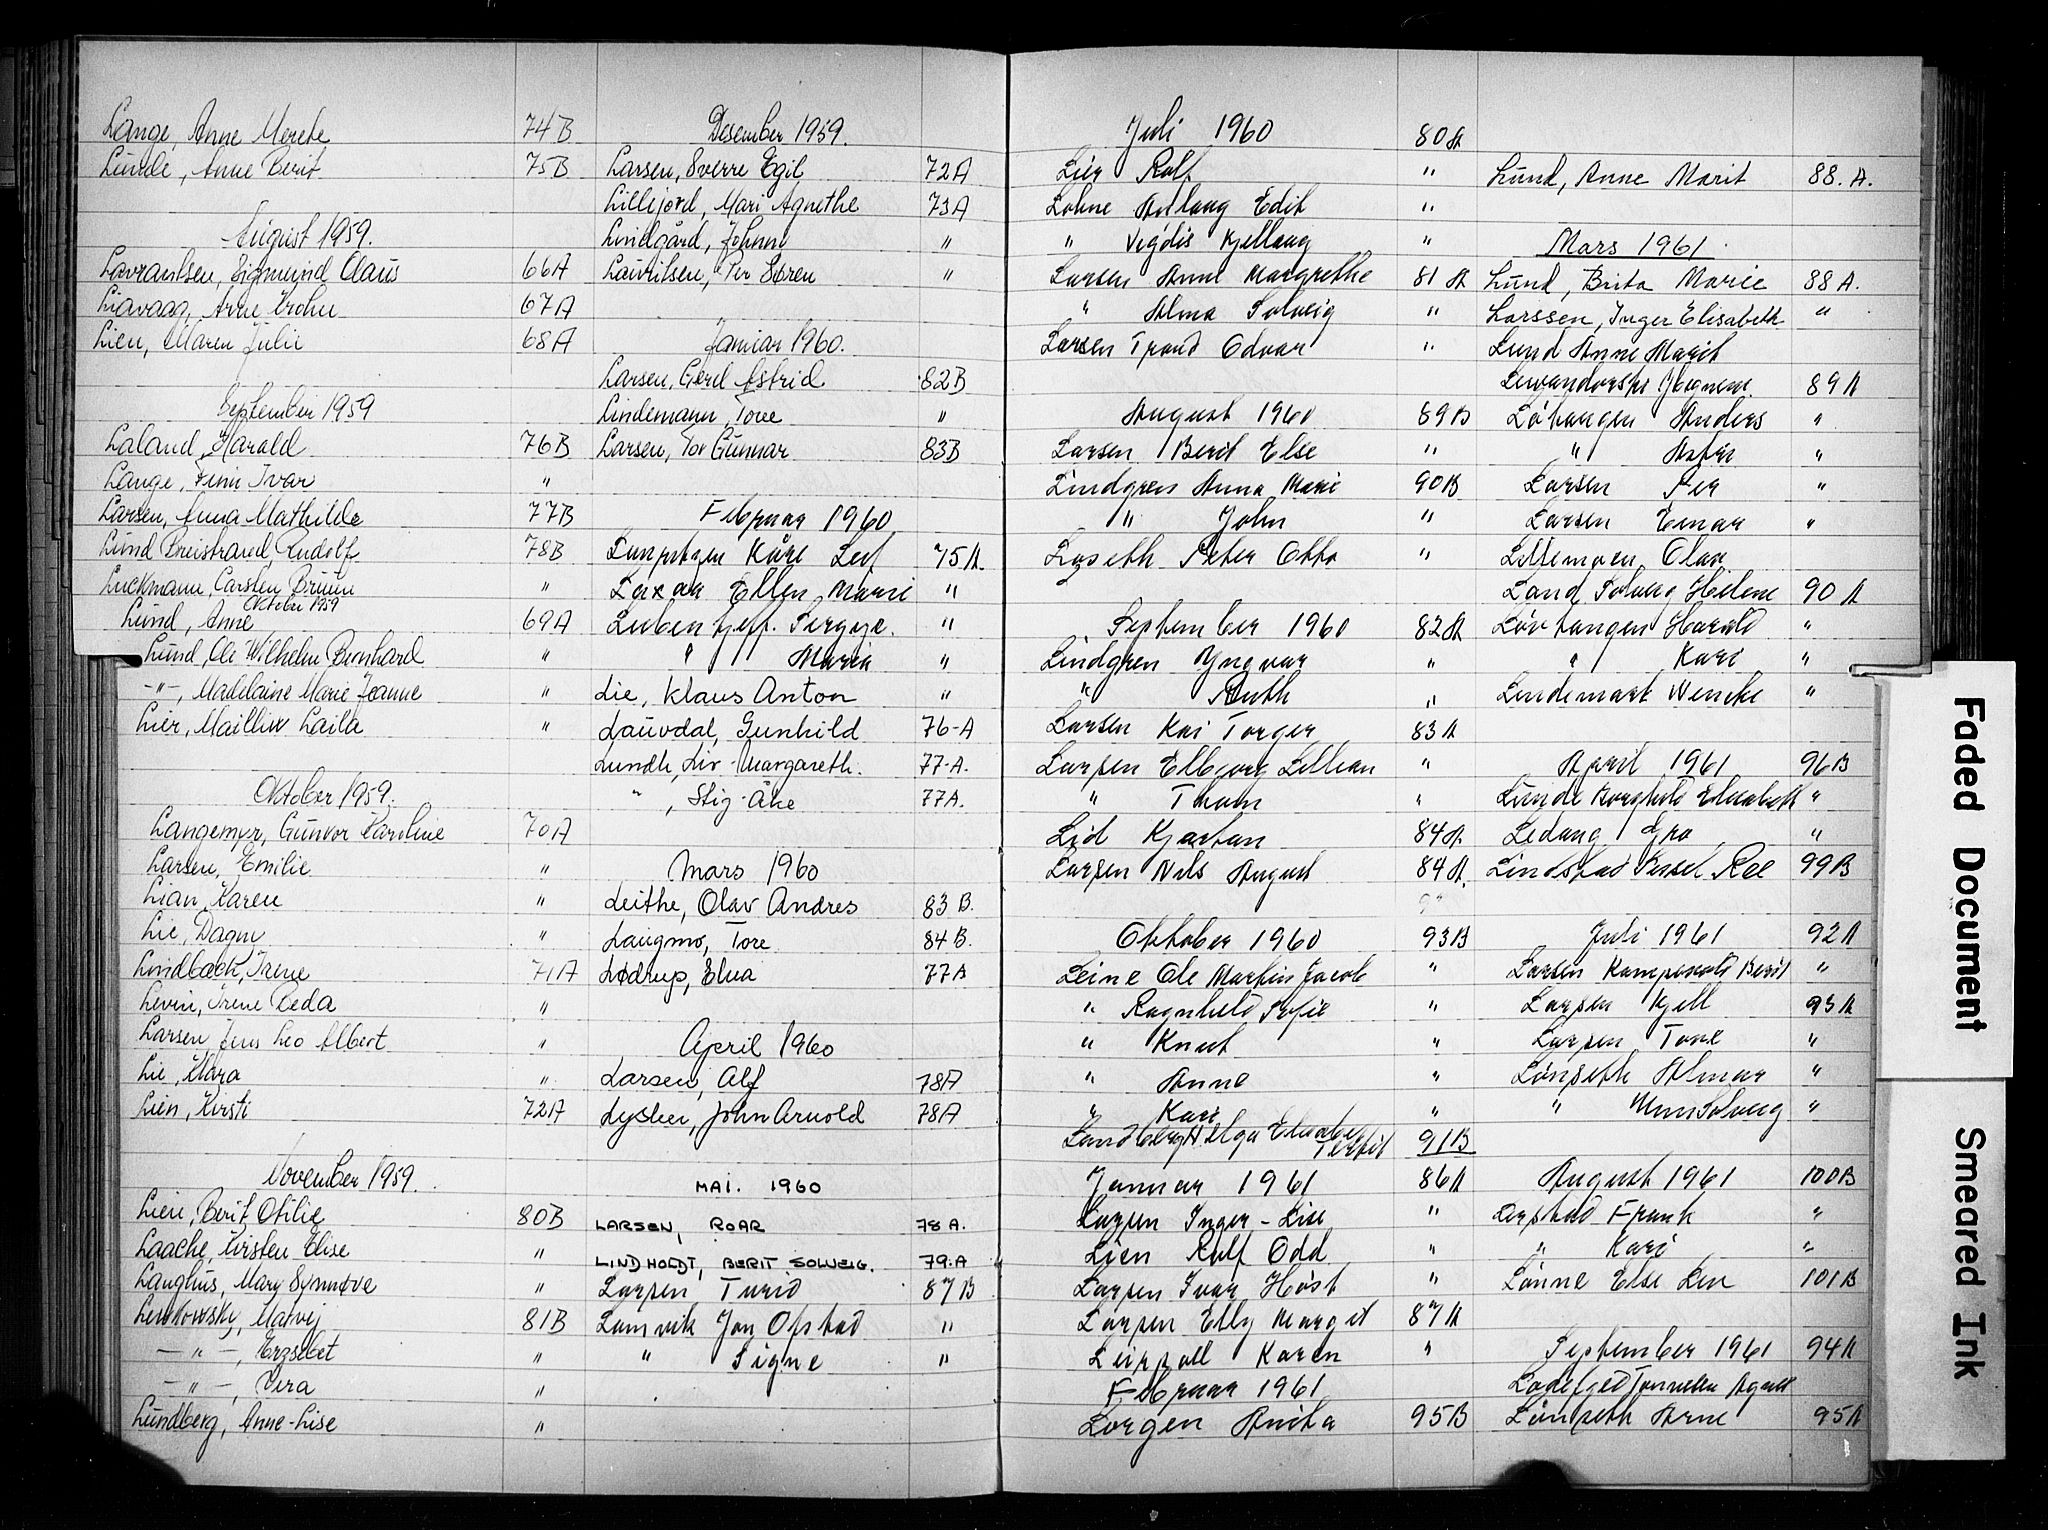 Lange, Anne Merete 74B
Lunde, Anne Berit 75B
August 1959.
Lavrantsen, Sigmund Olaus 66A
Liavaag, Arne Krohn 67A
Lien, Maren Julie 68A
September 1959
Laland, Harald 76B
Lange, Finn Ivar "
Larsen, Anna Mathilde 77B
Lund Breistrand, Rudolf 78B
Luckmann, Carsten Bruun "
Oktober 1959
Lund, Anne 69A
Lund, Ole Wilhelm Bernhard "
-"-, Madelaine Marie Jeanne "
Lier, Mailliw Laila "
Oktober 1959.
Langemyr, Gunvor Karoline 70A
Larsen, Emilie "
Lian, Karen "
Lie, Dagny "
Lindbäck, Irene 71A
Levin, Irene Leda "
Larsen, Jens Leo Albert "
Lie, Klara "
Lien, Kirsti 72A
November 1959.
Lien, Berit Otilie 80B
Laache, Kirsten Elise "
Langhus, Mary Synnøve "
Lewkowsky, Matvij 81B
-"-, Erzsebet "
-"-, Vera "
Lundberg, Anne-Lise "
Desember 1959.
Larsen, Sverre Egil 72A
Lillejord, Mari Agnethe 73A
Lindgård, Johnny "
Lauritsen, Per Søren "
Januar 1960.
Larsen, Gerd Astrid 82B
Lindemann, Tove "
Larsen, Tor Gunnar 83B
Februar 1960
Kåre Leif 75A
Laxaa Ellen Marie "
Luben "
" Maria "
Lie, Klaus Anton "
Lauvdal, Gunhild 76-A
Lundh, Liv-Margareth. 77-A.
", Stig-Åke 77A.
Mars 1960
Leithe, Olav Andres 83 B.
Laugmo, Tore 84 B.
Lødrup, Elna 77A
April 1960
Larsen, Alf 78A
Lysten, John Arnold 78A
MAI. 1960
LARSEN, ROAR 78 A.
LINDHOLDT, BERIT SOLVEIG. 79.A
Larsen Turid 87B
Lamvik Jon Ofstad "
" Signe "
Juli 1960 80A
Lier Rolf "
Lohne Aslaug Edit "
" Vigdis Kjellaug "
Larsen Anne Margrethe 81 A
" Alma Solveig "
Larsen Trond Odvar "
August 1960 89B
Larsen Berit Else "
Lindgren Anna Marie 90B
" John "
Peter Otto "
September 1960 82A
Lindgren Yngvar "
" Ruth "
Larsen Kai Torger 83A
Larsen Elbjørg Lillian "
" Thom "
Lid Kjartan 84A.
Larsen Nils August 84A.
Oktober 1960 93B
Leine Ole Martin Jacob "
" Ragnhild Sofie "
" Knut "
" Anne "
" Kari "
Landberg Helga 91B
Januar 1961 86A
Larsen Inger-Lise
Lien Rolf Odd "
Larsen Ivar Høst "
Larsen Elly Margit 87A
Leirvoll Karen "
Februar 1961
Lorgen Anita 95B
Lund, Anne Marit 88. A.
Mars 1961.
Lund, Brita Marie 88A.
Larssen, Inger Elisabeth "
Lund Anne Marit
89A
Løvhaugen Anders "
" "
Larsen Per "
Larsen Einar "
Lillemoen Olav
Land Solveig Helene 90 A
Løvhaugen Harald "
" Kari "
Lindemark Wencke "
April 1961 96B
Lunde Borghild Elisabeth "
Ledang Gro "
Lindstad Sissel Roe 99B
Juli 1961 92A
Larsen Berit "
Larsen Kjell 93A
Larsen Tone "
Lønseth Almar "
" Solveig "
August 1961 100B
Frank "
" Kari "
Lønne Else Len 101B
September 1961 94A
Agnes
Lønseth Arne 95A
Faded Document
Smeared Ink